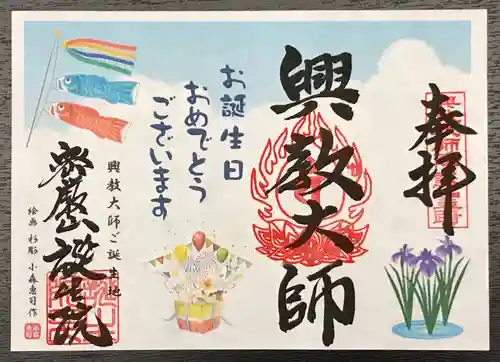 奉拝
興教大師
お誕生日
おめでとう
ございます
興教大師ご誕生地
密厳山誕生院
絵画 杉彫 小森恵司 作